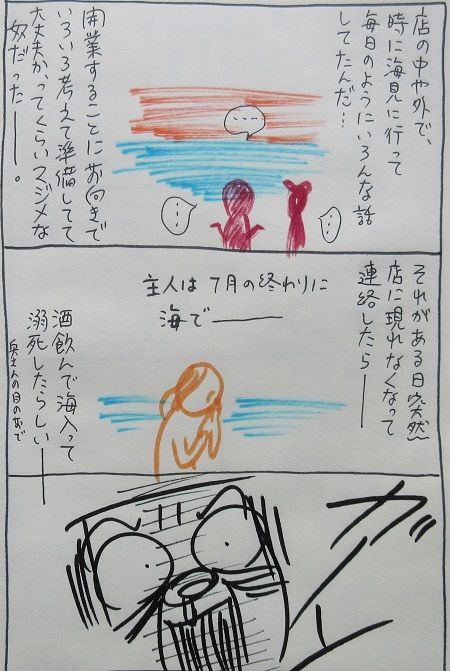 店の中や外で、
時に海見に行って
毎日のようにいろんな話
してたんだ…
開業することに前向きで
いろいろ考えて準備してて
大丈夫かってくらいスジメな
奴だったー。
それがある日突然
店に現れなくなって
連絡したら――
主人は7月の終わりに
海で――
酒飲んで海入って
溺死したらしい――
ガーン